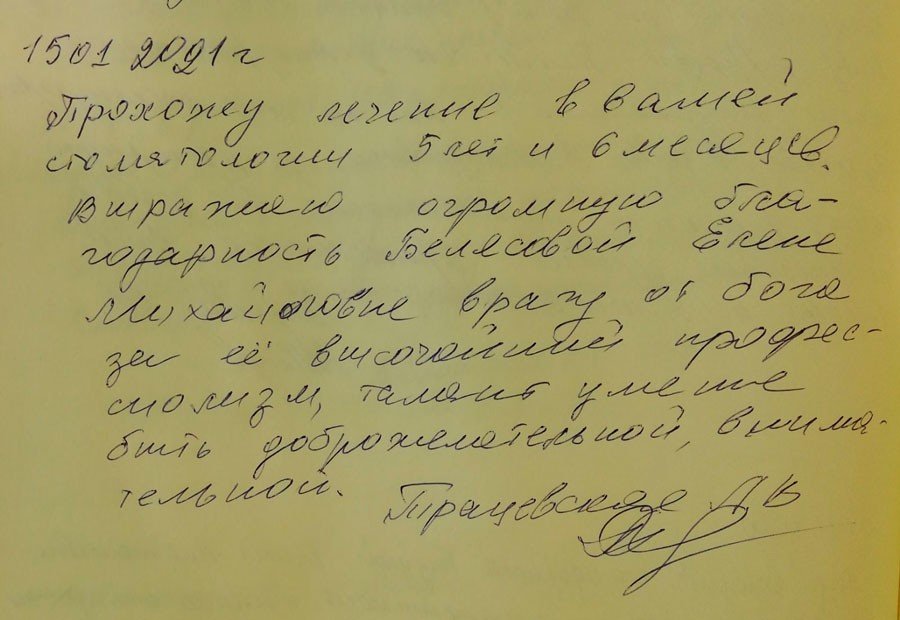 15 01 2021 г
Прохожу лечение в вашей
стоматологии 5 лет и 6 месяцев.
Выражаю огромную бла-
годарность Белясовой Елене
Михайловне врачу от бога
за её высочайший профес-
сиолизм, талант умение
быть доброжелательной, внима-
тельной.
Трацевская Л В